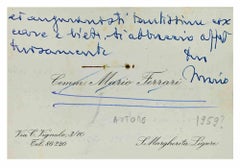 ed augurandoti tantissime cose
care e liete, ti abbraccio affet
tuosamente
tuo
Mario
Comm. Mario Ferrari
AUTORE 1959?
Via C. Vignolo, 3/10
Tel. 86220
S. Margherita Ligure